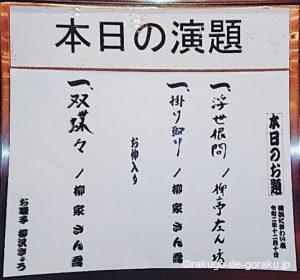 本日の演題
本日のお題
横浜にぎわい座
令和二年十二月十日
一、浮世根問 / 柳亭左ん坊
一、掛け取り / 柳家さん喬
お仲入り
一、双蝶々 / 柳家さん喬
お囃子 柳沢きょう
©rakugo-de-goraku.jp